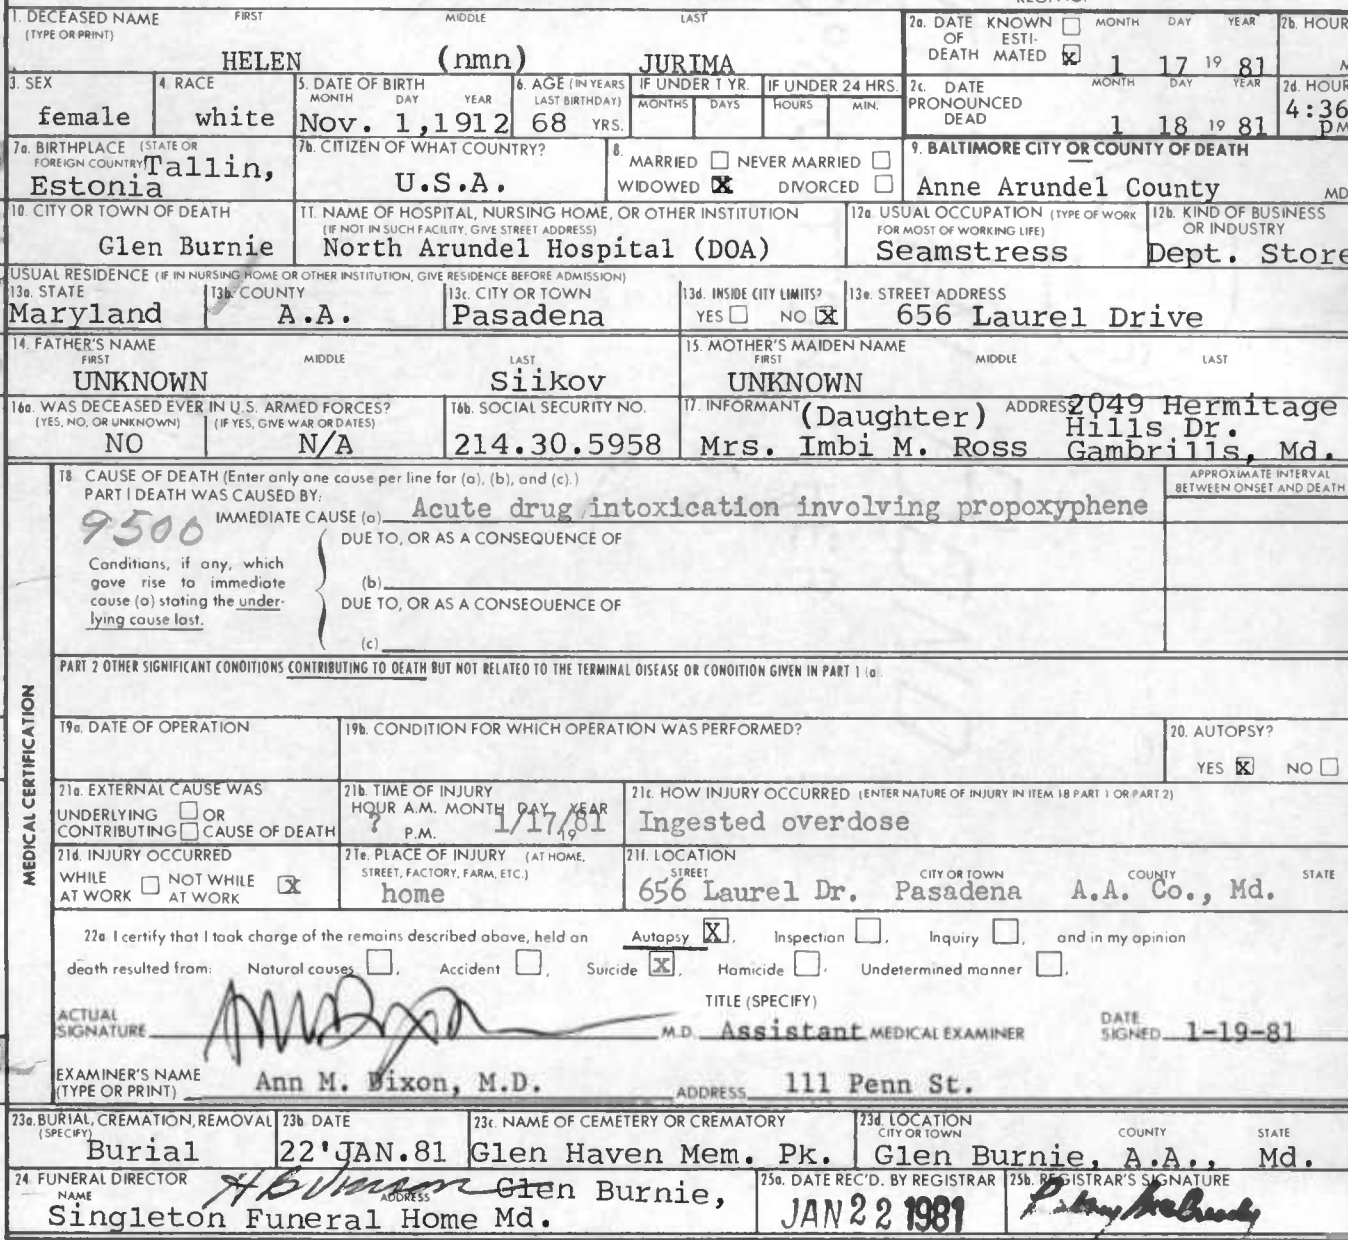 1. DECEASED NAME (TYPE OR PRINT) FIRST MIDDLE LAST
HELEN (nmn) JURIMA
2a. DATE OF DEATH KNOWN ☐ ESTIMATED ☒ MONTH DAY YEAR
1 17 19 81
2b. HOUR
M
3. SEX
female
4. RACE
white
5. DATE OF BIRTH MONTH DAY YEAR
Nov. 1,1912
6. AGE (IN YEARS LAST BIRTHDAY)
68 YRS.
IF UNDER 1 YR. MONTHS DAYS
IF UNDER 24 HRS. HOURS MIN.
2c. DATE PRONOUNCED DEAD MONTH DAY YEAR
1 18 19 81
2d. HOUR
4:36 PM
7a. BIRTHPLACE (STATE OR FOREIGN COUNTRY)
Tallin,
Estonia
7b. CITIZEN OF WHAT COUNTRY?
U.S.A.
8. MARRIED ☐ NEVER MARRIED ☐
WIDOWED ☒ DIVORCED ☐
9. BALTIMORE CITY OR COUNTY OF DEATH
Anne Arundel County MD
10. CITY OR TOWN OF DEATH
Glen Burnie
11. NAME OF HOSPITAL, NURSING HOME, OR OTHER INSTITUTION
(IF NOT IN SUCH FACILITY, GIVE STREET ADDRESS)
North Arundel Hospital (DOA)
12a. USUAL OCCUPATION (TYPE OF WORK FOR MOST OF WORKING LIFE)
Seamstress
12b. KIND OF BUSINESS OR INDUSTRY
Dept. Store
USUAL RESIDENCE (IF IN NURSING HOME OR OTHER INSTITUTION, GIVE RESIDENCE BEFORE ADMISSION)
13a. STATE
Maryland
13b. COUNTY
A.A.
13c. CITY OR TOWN
Pasadena
13d. INSIDE CITY LIMITS?
YES ☐ NO ☒
13e. STREET ADDRESS
656 Laurel Drive
14. FATHER'S NAME FIRST MIDDLE LAST
UNKNOWN Siikov
15. MOTHER'S MAIDEN NAME FIRST MIDDLE LAST
UNKNOWN
16a. WAS DECEASED EVER IN U.S. ARMED FORCES?
(YES, NO, OR UNKNOWN) (IF YES, GIVE WAR OR DATES)
NO N/A
16b. SOCIAL SECURITY NO.
214.30.5958
17. INFORMANT (Daughter)
Mrs. Imbi M. Ross
ADDRESS 2049 Hermitage
Hills Dr.
Gambrills, Md.
MEDICAL CERTIFICATION
18 CAUSE OF DEATH (Enter only one cause per line for (a), (b), and (c).)
APPROXIMATE INTERVAL BETWEEN ONSET AND DEATH
PART I DEATH WAS CAUSED BY:
9500
IMMEDIATE CAUSE (a) Acute drug intoxication involving propoxyphene
DUE TO, OR AS A CONSEQUENCE OF
Conditions, if any, which gave rise to immediate cause (a) stating the underlying cause last.
(b)
DUE TO, OR AS A CONSEQUENCE OF
(c)
PART 2 OTHER SIGNIFICANT CONDITIONS CONTRIBUTING TO DEATH BUT NOT RELATED TO THE TERMINAL DISEASE OR CONDITION GIVEN IN PART 1 (a)
19a. DATE OF OPERATION
19b. CONDITION FOR WHICH OPERATION WAS PERFORMED?
20. AUTOPSY?
YES ☒ NO ☐
21a. EXTERNAL CAUSE WAS
UNDERLYING ☐ OR
CONTRIBUTING ☐ CAUSE OF DEATH
21b. TIME OF INJURY
HOUR A.M. MONTH DAY YEAR
? P.M. 1/17/81 19
21c. HOW INJURY OCCURRED (ENTER NATURE OF INJURY IN ITEM 18 PART 1 OR PART 2)
Ingested overdose
21d. INJURY OCCURRED
WHILE AT WORK ☐ NOT WHILE AT WORK ☒
21e. PLACE OF INJURY (AT HOME, STREET, FACTORY, FARM, ETC.)
home
21f. LOCATION
STREET CITY OR TOWN COUNTY STATE
656 Laurel Dr. Pasadena A.A. Co., Md.
22a I certify that I took charge of the remains described above, held an Autopsy ☒, Inspection ☐, Inquiry ☐, and in my opinion
death resulted from: Natural causes ☐, Accident ☐, Suicide ☒, Homicide ☐, Undetermined manner ☐,
ACTUAL SIGNATURE M.D.
TITLE (SPECIFY)
Assistant MEDICAL EXAMINER
DATE SIGNED 1-19-81
EXAMINER'S NAME (TYPE OR PRINT) Ann M. Dixon, M.D.
ADDRESS 111 Penn St.
23a. BURIAL, CREMATION, REMOVAL (SPECIFY)
Burial
23b DATE
22'JAN.81
23c. NAME OF CEMETERY OR CREMATORY
Glen Haven Mem. Pk.
23d. LOCATION CITY OR TOWN COUNTY STATE
Glen Burnie, A.A., Md.
24. FUNERAL DIRECTOR
NAME ADDRESS
Glen Burnie,
Singleton Funeral Home Md.
25a. DATE REC'D. BY REGISTRAR
JAN 22 1981
25b. REGISTRAR'S SIGNATURE